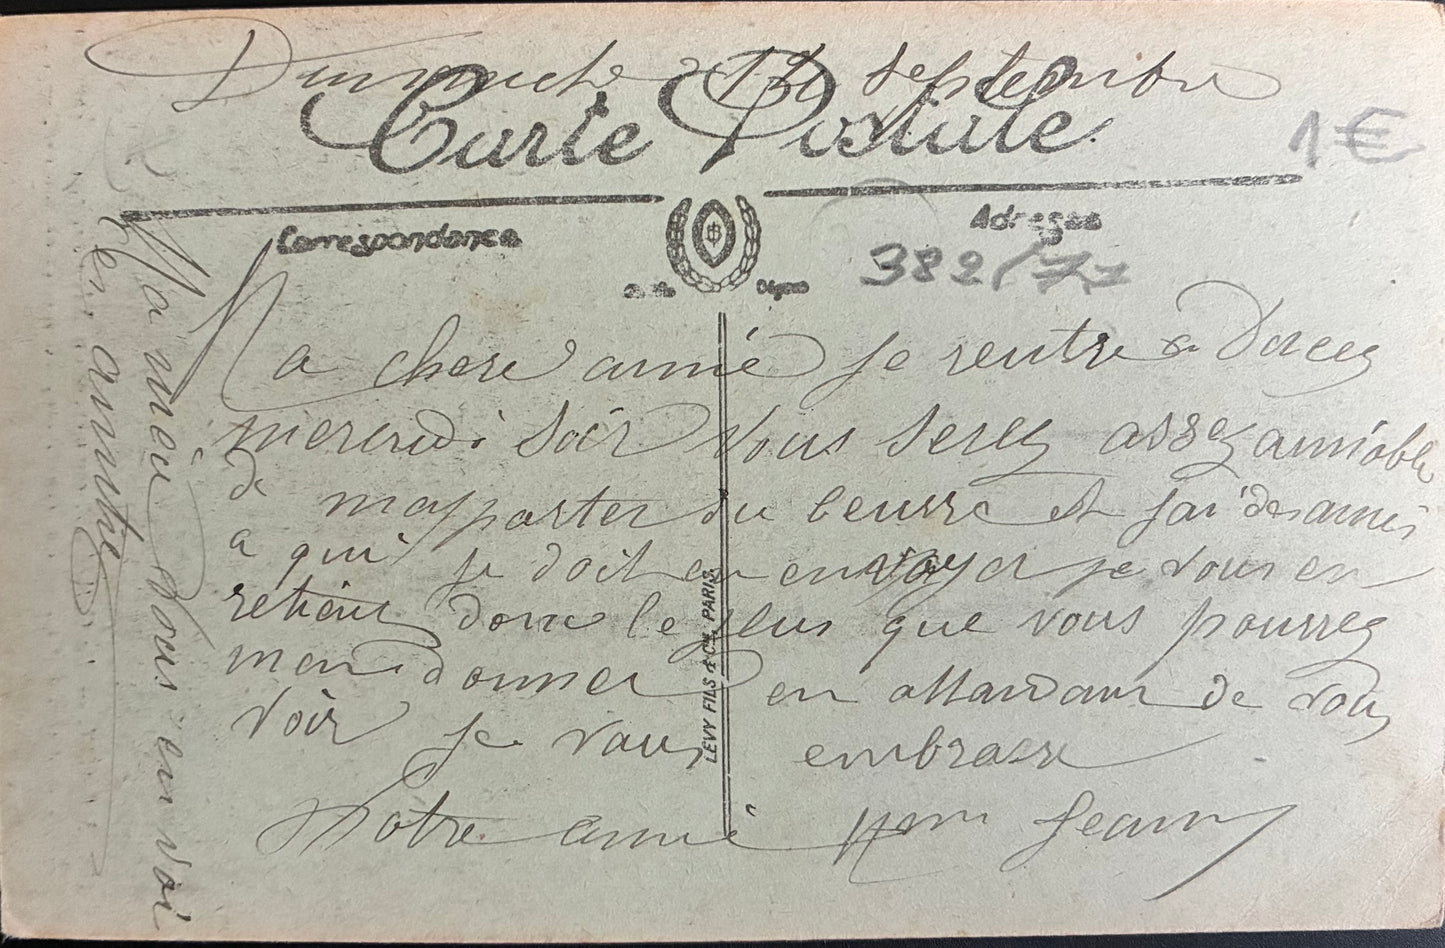 Dimanche 12 Septembre
Carte Postale
1€
Correspondance
Adresse
382/77
Ma chere amie je rentre a
mercredi soir vous serez assez amiable
de mapporter du beurre et jai des amis
a qui je doit en envoyer je vous en
retient donc le plus que vous pourrez
men donner en attandant de vous
voir je vous embrasse
Votre amie Jeanne
Ma mère vous envoi
ses amitiés
LEVY FILS & Cie, PARIS